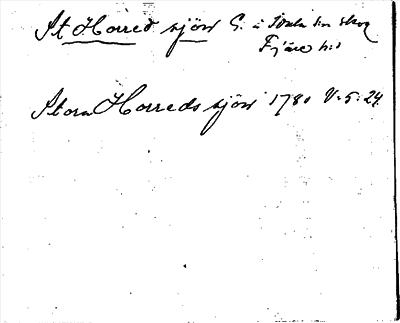 St Horred sjön S. i skog
Fjäre hd
Stora Horreds sjön 1780 V:5:24.